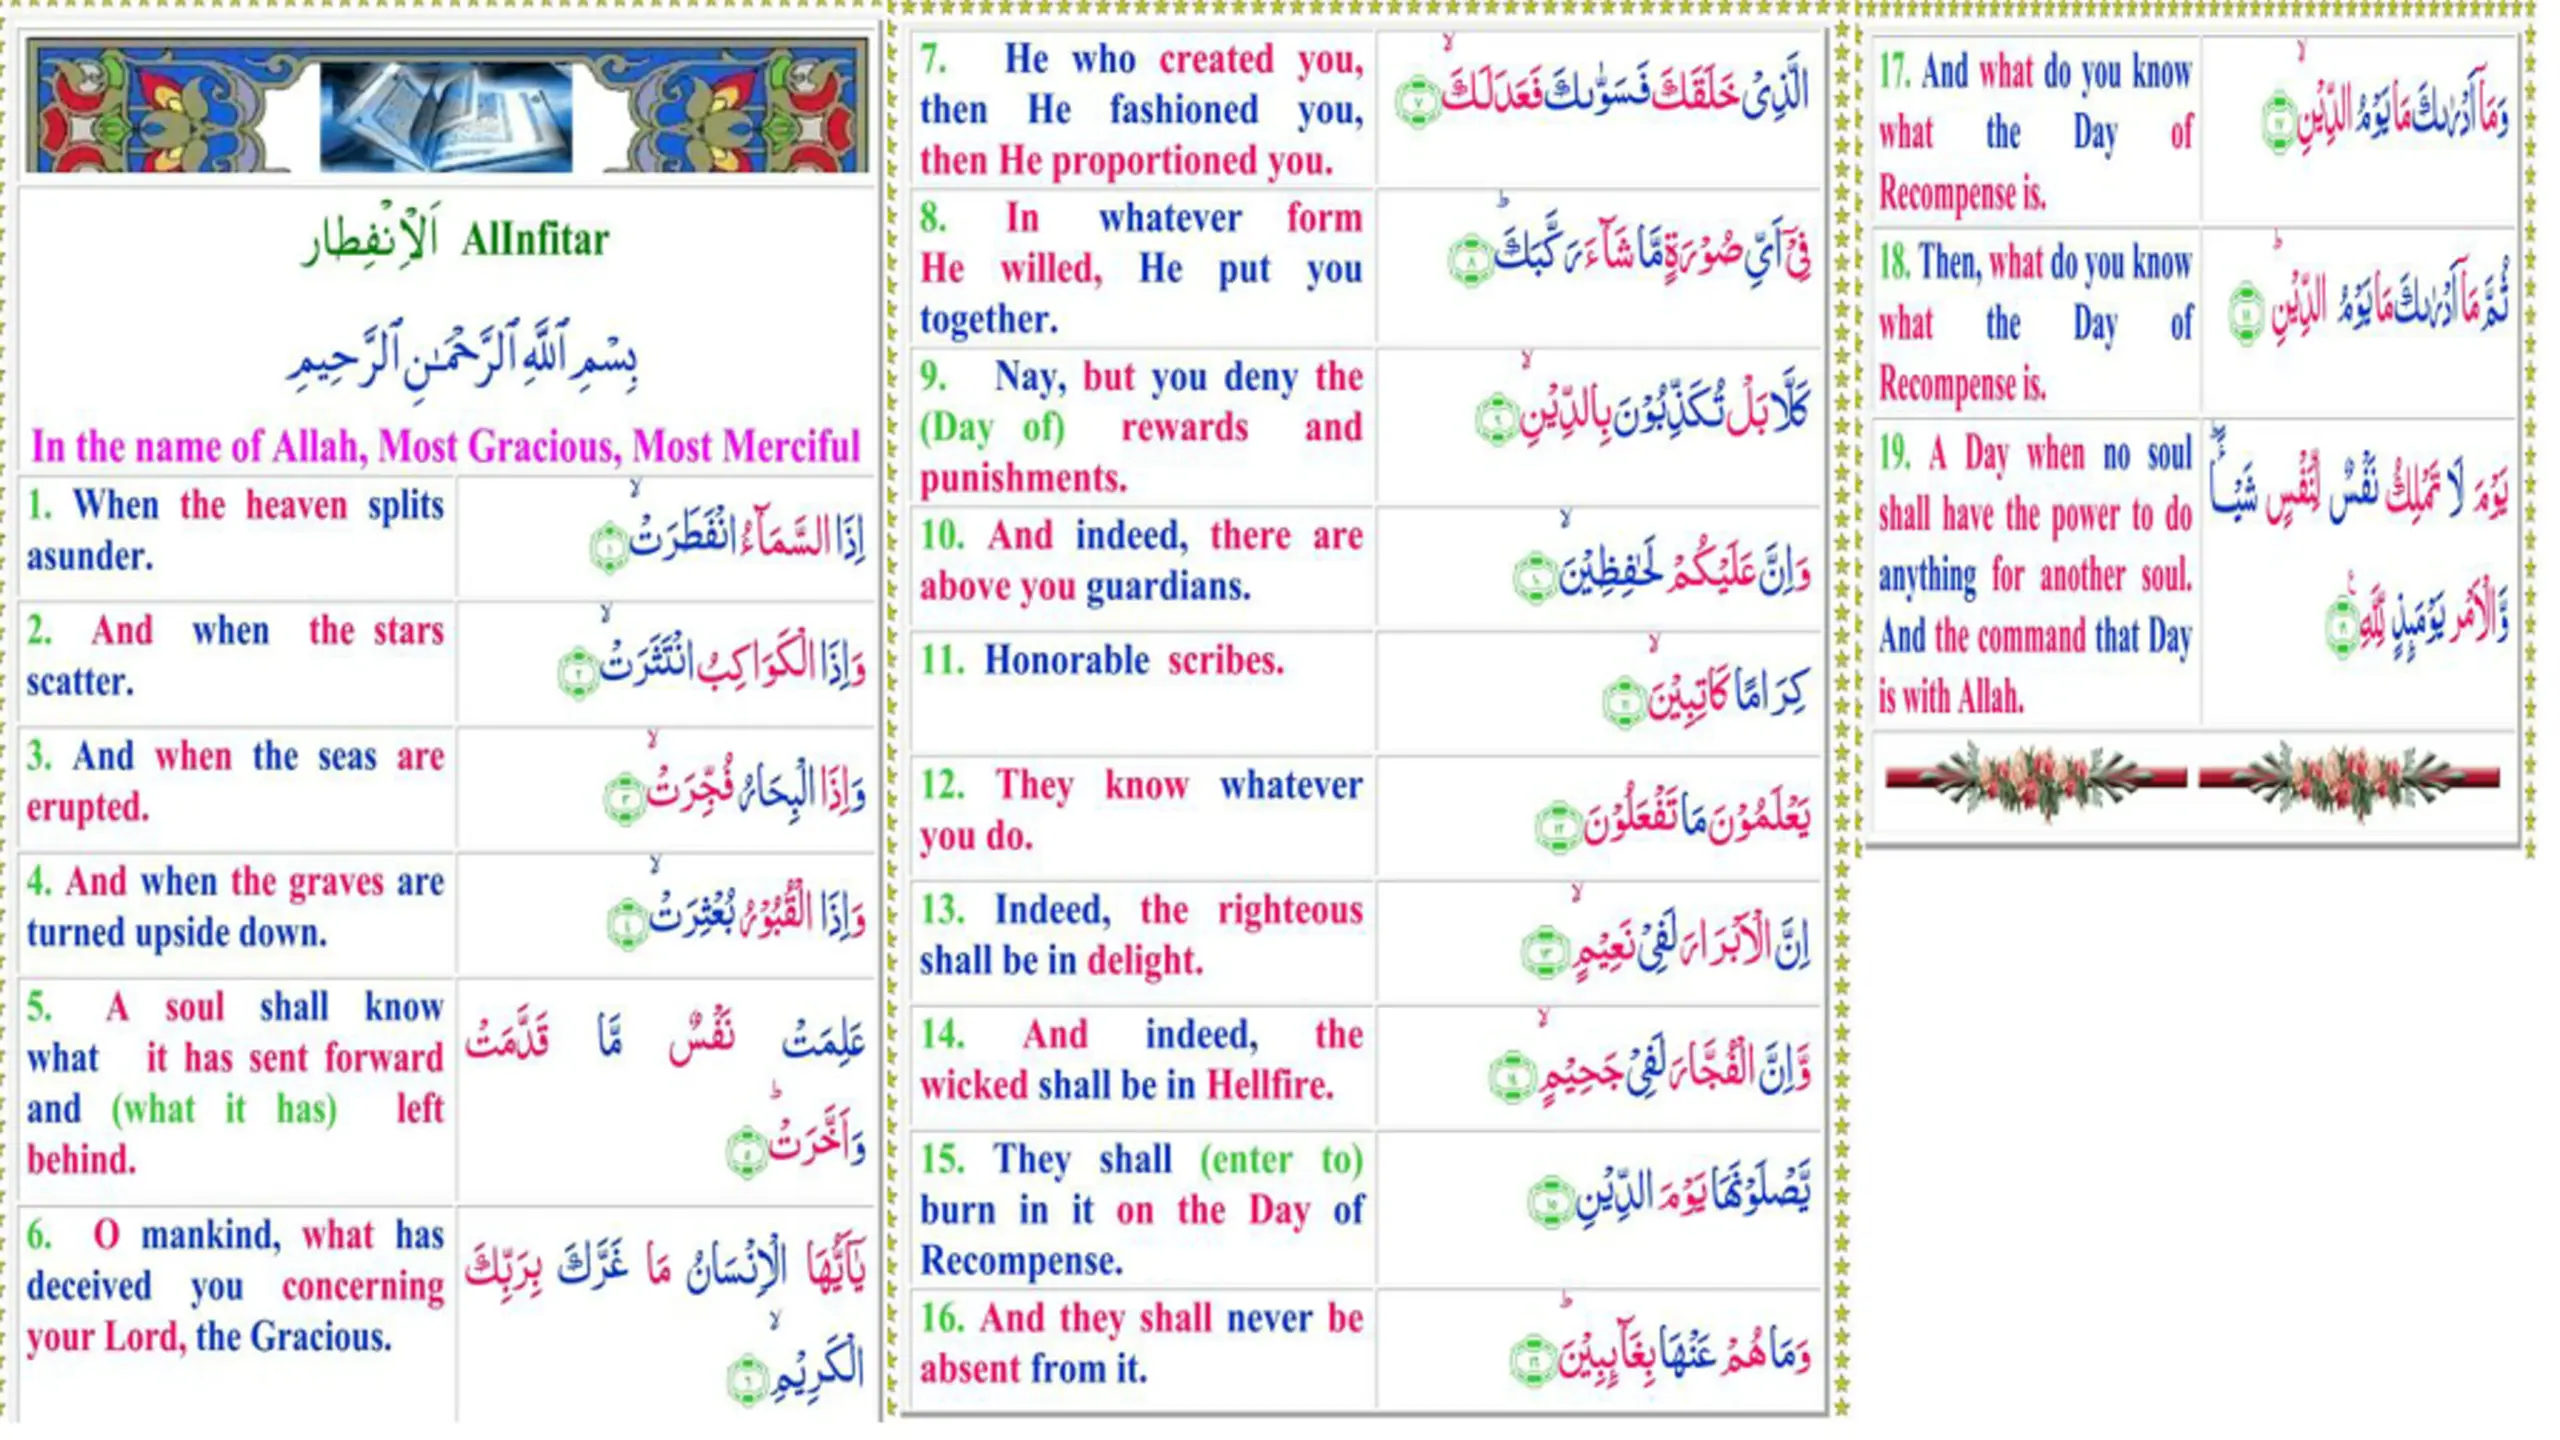 اَلْاِنْفِطار AlInfitar
بِسْمِ ٱللَّهِ ٱلرَّحْمَـٰنِ ٱلرَّحِيمِ
In the name of Allah, Most Gracious, Most Merciful
1. When the heaven splits
asunder.
اِذَا السَّمَآءُ انْفَطَرَتْ ۙ ١
2. And when the stars
scatter.
وَاِذَا الْكَوَاكِبُ انْتَثَرَتْ ۙ ٢
3. And when the seas are
erupted.
وَاِذَا الْبِحَارُ فُجِّرَتْ ۙ ٣
4. And when the graves are
turned upside down.
وَاِذَا الْقُبُوْرُ بُعْثِرَتْ ۙ ٤
5. A soul shall know
what it has sent forward
and (what it has) left
behind.
عَلِمَتْ نَفْسٌ مَّا قَدَّمَتْ
وَاَخَّرَتْ ؕ ٥
6. O mankind, what has
deceived you concerning
your Lord, the Gracious.
يٰۤاَيُّهَا الْاِنْسَانُ مَا غَرَّكَ بِرَبِّكَ
الْكَرِيْمِ ۙ ٦
7. He who created you,
then He fashioned you,
then He proportioned you.
الَّذِىْ خَلَقَكَ فَسَوّٰٮكَ فَعَدَلَكَ ۙ ٧
8. In whatever form
He willed, He put you
together.
فِىْۤ اَىِّ صُوْرَةٍ مَّا شَآءَ رَكَّبَكَ ؕ ٨
9. Nay, but you deny the
(Day of) rewards and
punishments.
كَلَّا بَلْ تُكَذِّبُوْنَ بِالدِّيْنِ ۙ ٩
10. And indeed, there are
above you guardians.
وَاِنَّ عَلَيْكُمْ لَحٰفِظِيْنَ ۙ ١٠
11. Honorable scribes.
كِرَامًا كَاتِبِيْنَ ۙ ١١
12. They know whatever
you do.
يَعْلَمُوْنَ مَا تَفْعَلُوْنَ ١٢
13. Indeed, the righteous
shall be in delight.
اِنَّ الْاَبْرَارَ لَفِىْ نَعِيْمٍ ۙ ١٣
14. And indeed, the
wicked shall be in Hellfire.
وَّاِنَّ الْفُجَّارَ لَفِىْ جَحِيْمٍ ۙ ١٤
15. They shall (enter to)
burn in it on the Day of
Recompense.
يَّصْلَوْنَهَا يَوْمَ الدِّيْنِ ١٥
16. And they shall never be
absent from it.
وَمَا هُمْ عَنْهَا بِغَآٮِٕبِيْنَ ؕ ١٦
17. And what do you know
what the Day of
Recompense is.
وَمَاۤ اَدْرٰٮكَ مَا يَوْمُ الدِّيْنِ ۙ ١٧
18. Then, what do you know
what the Day of
Recompense is.
ثُمَّ مَاۤ اَدْرٰٮكَ مَا يَوْمُ الدِّيْنِ ؕ ١٨
19. A Day when no soul
shall have the power to do
anything for another soul.
And the command that Day
is with Allah.
يَوْمَ لَا تَمْلِكُ نَفْسٌ لِّنَفْسٍ شَيْــًٔا ؕ
وَّالْاَمْرُ يَوْمَٮِٕذٍ لِّلّٰهِ ١٩